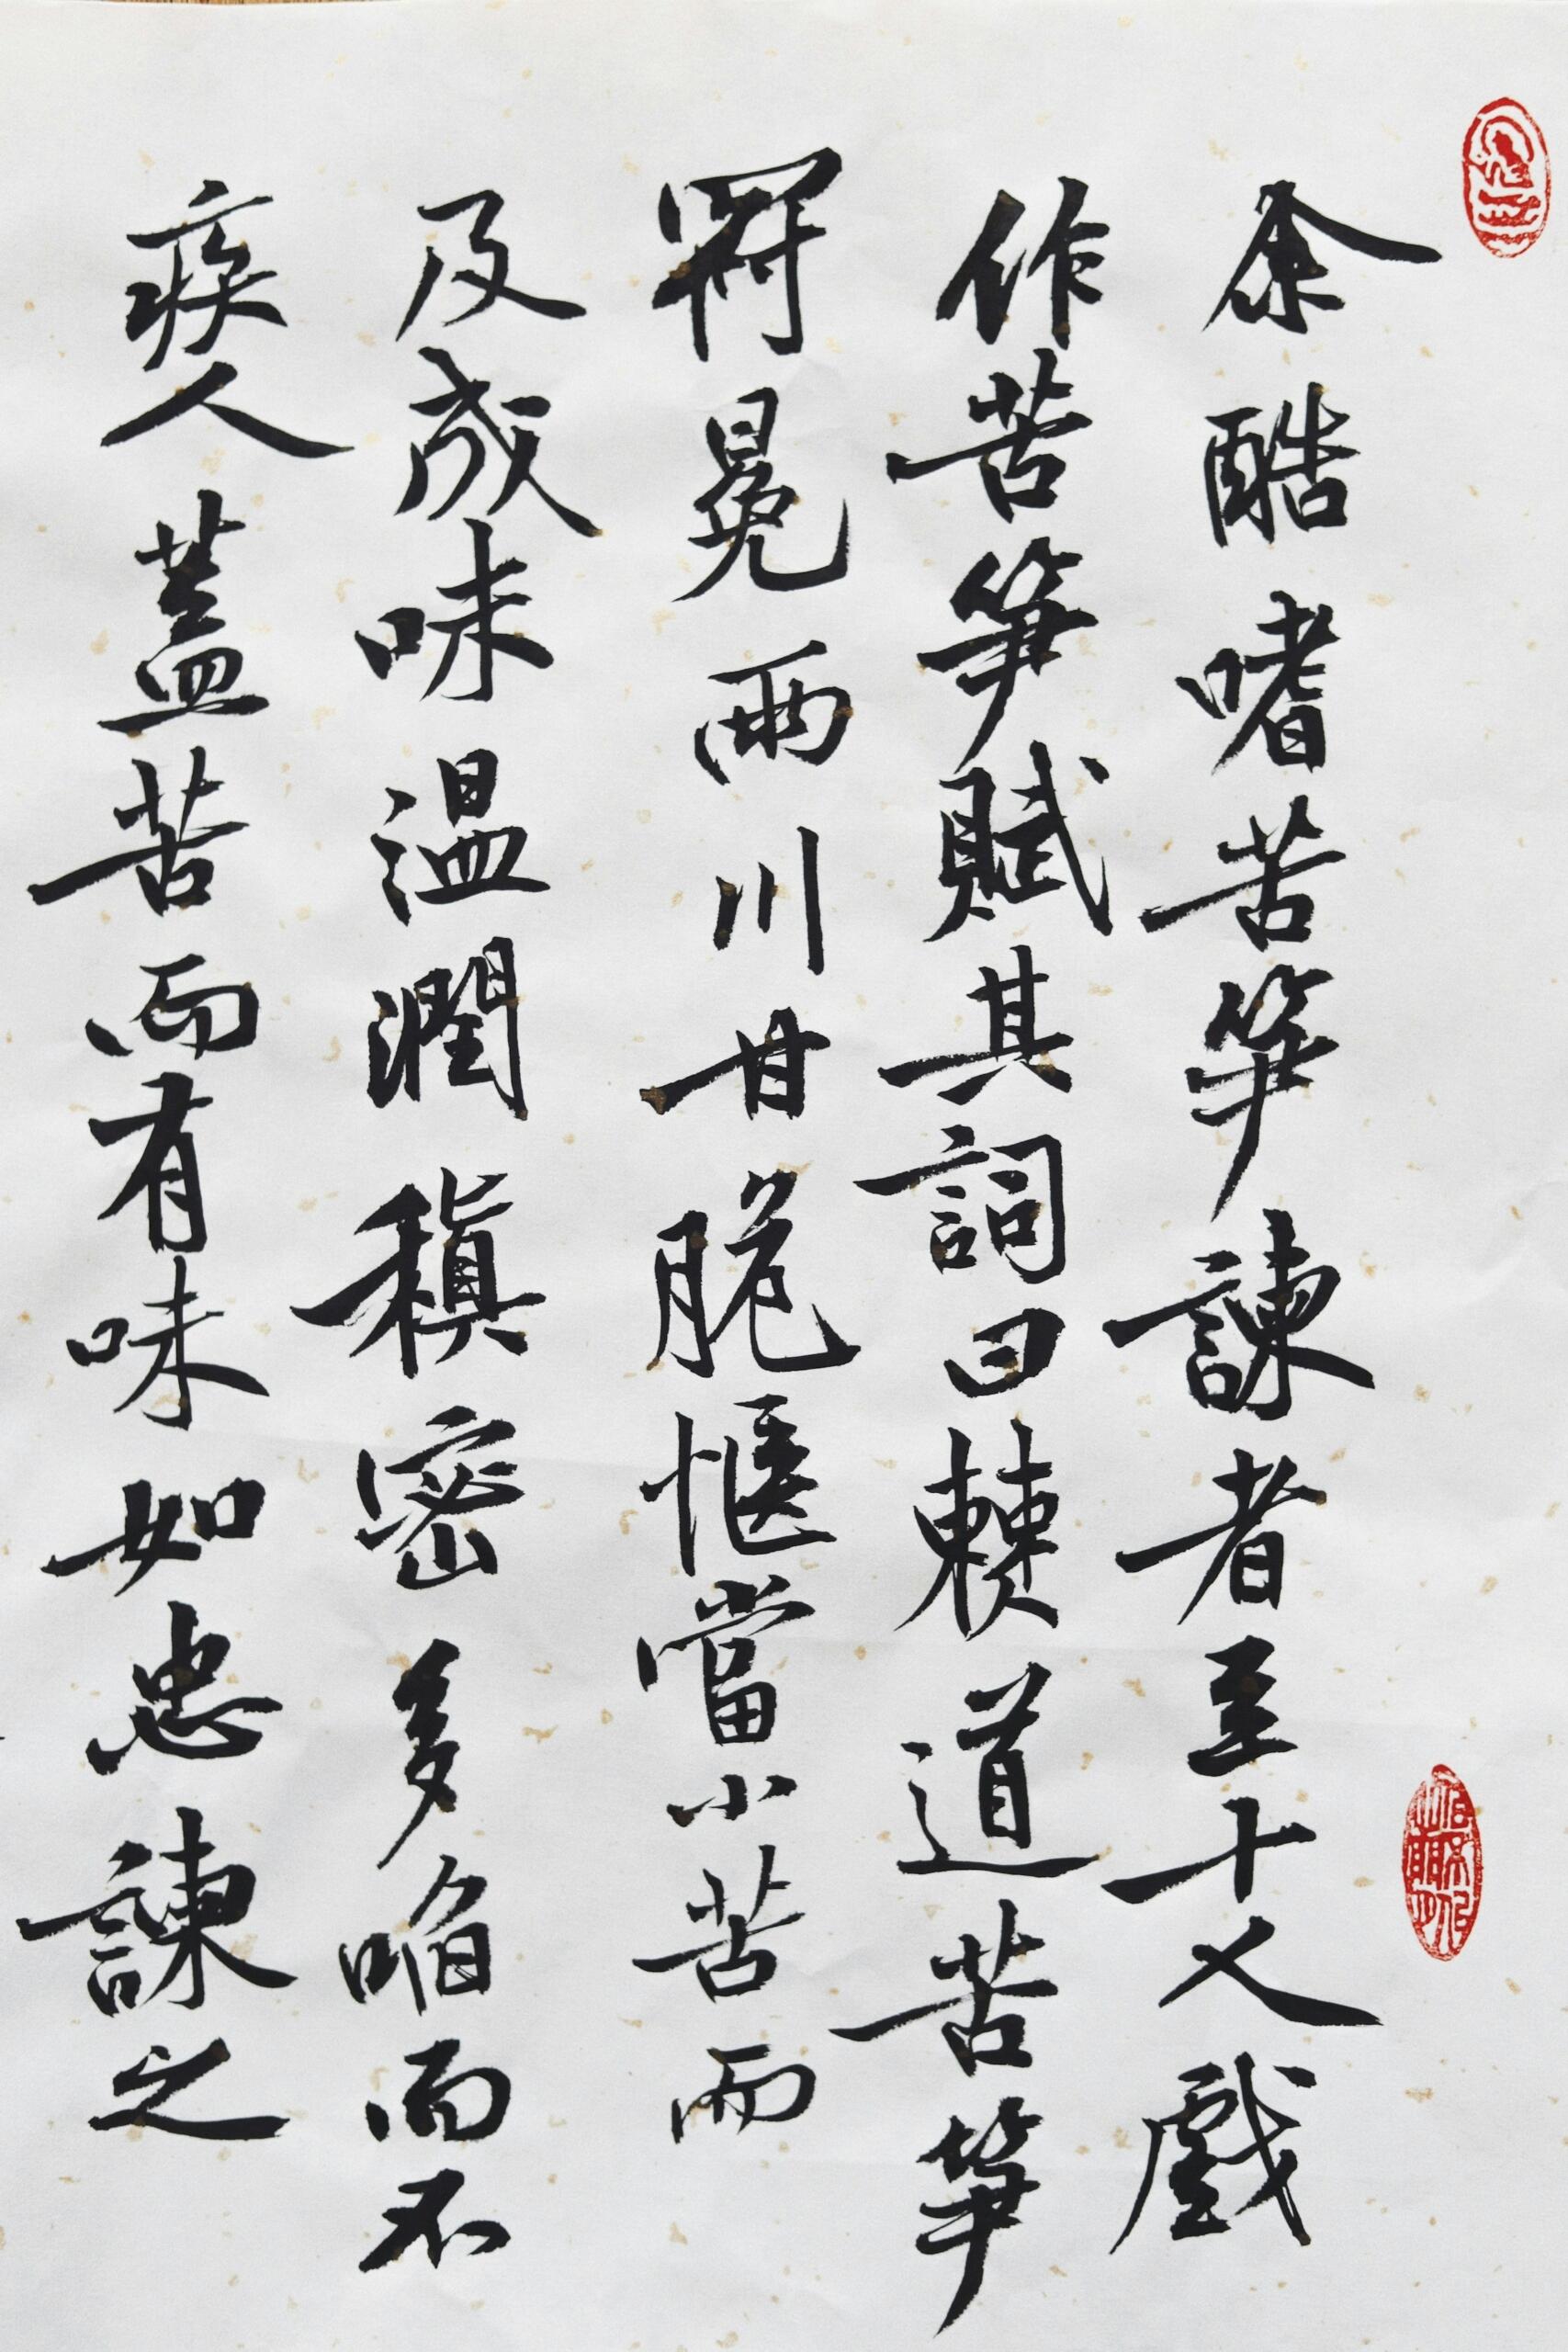 余酷嗜苦筍諫者至十人戲
作苦筍賦其詞曰僰道苦筍
冠冕兩川甘脆愜當小苦而
及成味溫潤稹密多啗而不
疾人蓋苦而有味如忠諫之